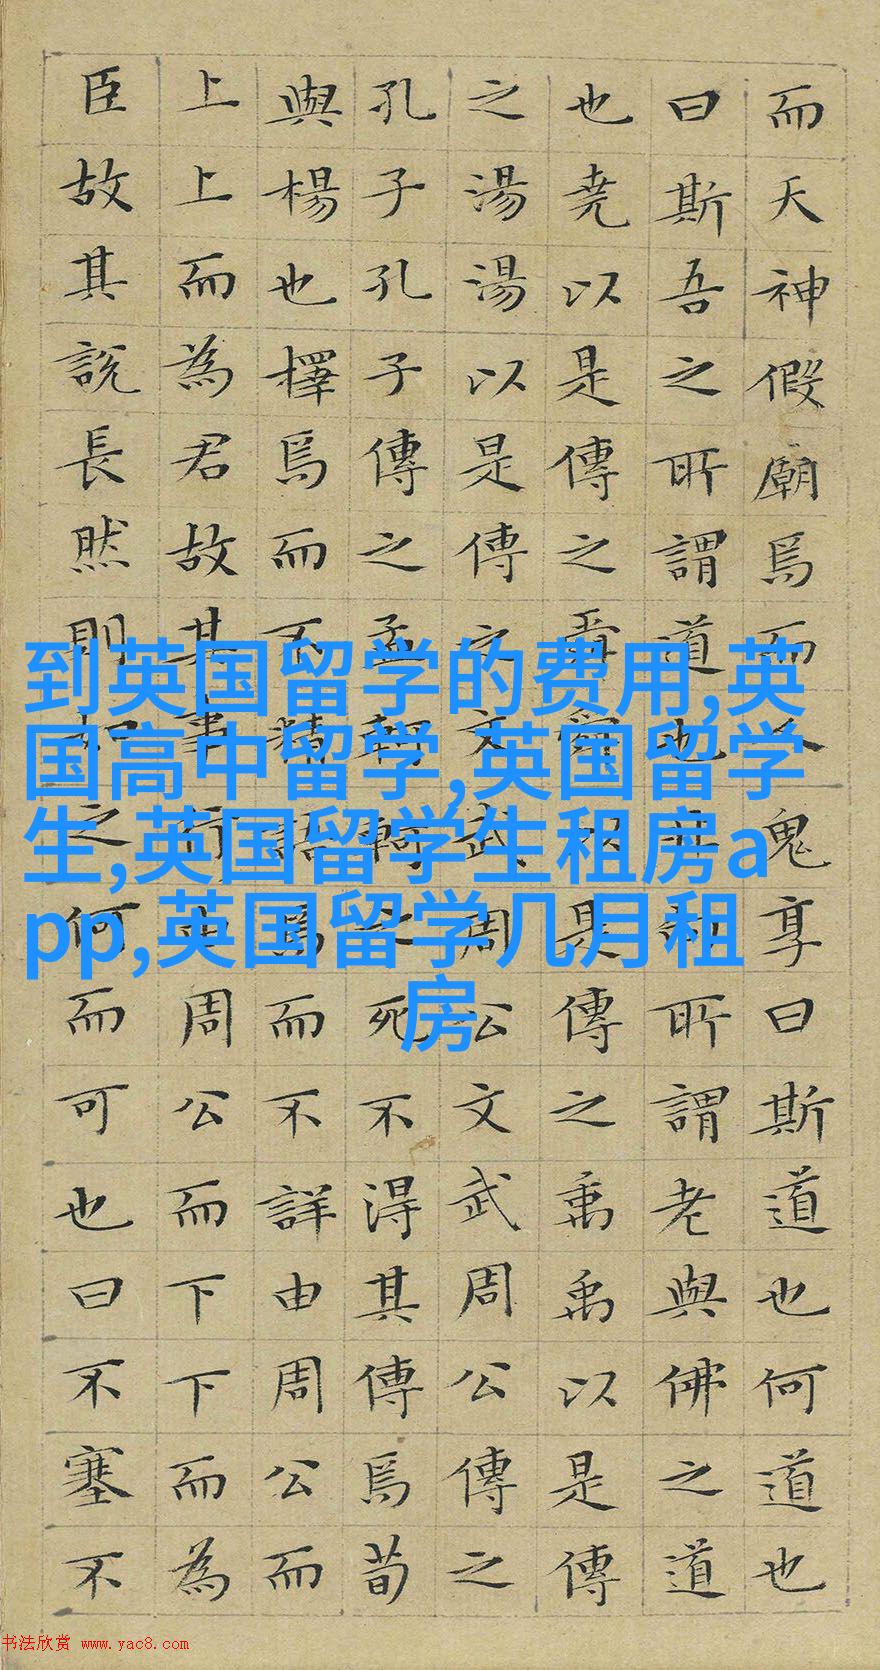 而天神假廟焉而人鬼享曰斯道也何道也
曰斯吾之所謂道也非向所謂老與佛之道
也堯以是傳之舜舜以是傳之禹禹以是傳
之湯湯以是傳之文武周公文武周公傳之
孔子孔子傳之孟軻軻之死不得其傳焉荀
與楊也擇焉而不精語焉而不詳由周公而
上上而為君故其事行由周公而下下而為
臣故其說長然則如之何而可也曰不塞不
到英国留学的费用,英
国高中留学,英国留学
生,英国留学生租房a
pp,英国留学几月租
房
书法欣赏 www.yac8.com